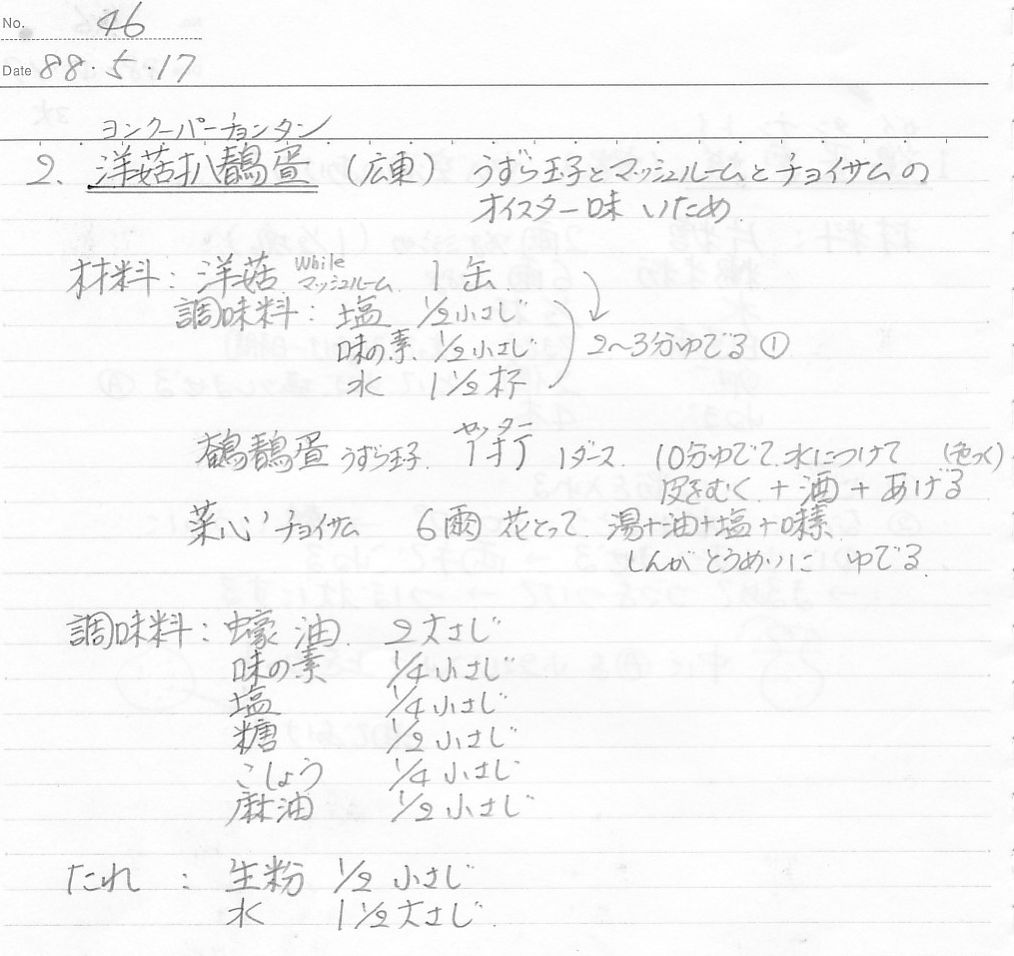 No. 46
Date 88.5.17
ヨンクーパーチョンタン
2. 洋菇扒鶉蛋 (広東) うずら玉子とマッシュルームとチョイサムの
オイスター味 いため
材料: 洋菇 While マッシュルーム 1缶
調味料: 塩 1/2小さじ
味の素 1/2小さじ 2〜3分ゆでる ①
水 1 1/2杯
鵪鶉蛋 うずら玉子 1打 ヤッター 1ダース 10分ゆでて.水につけて (色つく)
皮をむく + 酒 + あげる
菜心 チョイサム 6両 花とって 湯+油+塩+味素
しんが とうめいに ゆでる.
調味料: 蠔油 2大さじ
味の素 1/4小さじ
塩 1/4小さじ
糖 1/2小さじ
こしょう 1/4小さじ
麻油 1/2小さじ
たれ : 生粉 1/2小さじ
水 1 1/2大さじ